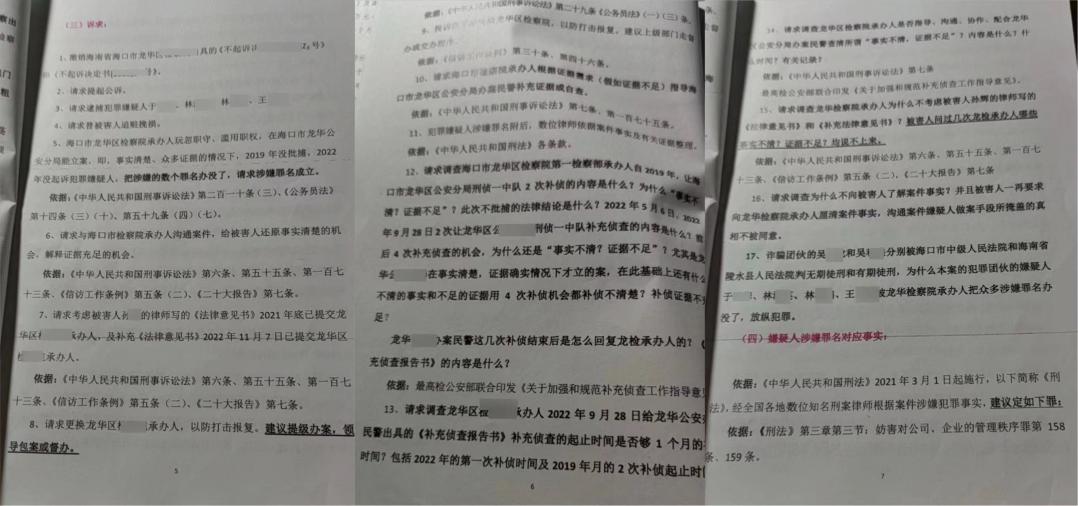 （三）诉求：
1、撤销海南省海口市龙华区 具的《不起诉决 Z5 号》
和《不起诉决定书[ 号》。
2、请求提起公诉。
3、请求逮捕犯罪嫌疑人于 、林 林 、王
4、请求替被害人追赃挽损。
5、海口市龙华区检察院承办人玩忽职守、滥用职权，在海口市龙华公
安分局能立案、即，事实清楚、众多证据的情况下，2019 年没批捕，2022
年没起诉犯罪嫌疑人，把涉嫌的数个罪名办没了，请求涉嫌罪名成立。
依据：《中华人民共和国刑事诉讼法》第二百一十条（三）、《公务员法》
第十四条（三）（十）、第五十九条（四）（七）。
6、请求与海口市检察院承办人沟通案件，给被害人还原事实清楚的机
会、解释证据充足的机会。
依据：《中华人民共和国刑事诉讼法》第六条、第五十五条、第一百七
十三条、《信访工作条例》第五条（二）、《二十大报告》第七条。
7、请求考虑被害人孙 的律师写的《法律意见书》2021 年底已提交龙
华区 承办人，及补充《法律意见书》2022 年 11 月 7 日已提交龙华区
承办人。
依据：《中华人民共和国刑事诉讼法》第六条、第五十五条、第一百七
十三条、《信访工作条例》第五条（二）、《二十大报告》第七条。
8、请求更换龙华区 承办人，以防打击报复。建议提级办案，领
导包案或督办。
5
依据：《中华人民共和国刑事诉讼法》第二十九条《公务员法》（一）（三）条、
9、 龙华区检察院，以防打击报复。建议上级部门走督
办或交办程序。
依据：《信访工作条例》第三十条、第四十六条。
10、请求海口市检察院承办人根据证据需求（假如证据不足）指导海
口市龙华区公安分局办案民警补充证据或自查。
依据：《中华人民共和国刑事诉讼法》第七条、第一百七十五条。
11、犯罪嫌疑人涉嫌罪名附后，数位律师依据案件事实及有关证据整理。
依据：《中华人民共和国刑法》各条款。
12、请求调查海口市龙华区检察院第一检察部承办人自 2019 年，让海
口市龙华区公安分局刑侦一中队 2 次补侦的内容是什么？为什么“事实不
清？证据不足”？此次不批捕的法律结论是什么？2022 年 5 月 6 日、2022
年 9 月 28 日 2 次让龙华区公 刑侦一中队补充侦查的内容是什么？前
后 4 次补充侦查的机会，为什么还是“事实不清？证据不足”？尤其是龙
华公 在事实清楚，证据确实情况下才立的案，在此基础上还有什么
不清的事实和不足的证据用 4 次补侦机会都补侦不清楚？补侦证据不充
足？
龙华 办案民警这几次补侦结束后是怎么回复龙检承办人的？《
充侦查报告书》的内容是什么？
依据：最高检公安部联合印发《关于加强和规范补充侦查工作指导意见
13、请求调查龙华区 承办人 2022 年 9 月 28 日给龙华公安
民警出具的《补充侦查报告书》补充侦查的起止时间是否够 1 个月的
时间？包括 2022 年的第一次补侦时间及 2019 年月的 2 次补侦起止时间
6
14、请求调查龙华区检察院承办人是否指导、沟通、协作、配合龙华
区公安分局办案民警查清所谓“事实不清，证据不足”？内容是什么？什
时间？有关记录？
依据：《中华人民共和国刑事诉讼法》第七条
最高检公安部联合印发《关于加强和规范补充侦查工作指导意见》。
15、请求调查龙华检察院承办人为什么不考虑被害人孙辉的律师写的
《法律意见书》和《补充法律意见书》？被害人问过几次龙检承办人哪些
事实不清？证据不足？均说不上来。
依据：《中华人民共和国刑事诉讼法》第六条、第五十五条、第一百七
十三条、《信访工作条例》第五条（二）、《二十大报告》第七条
16、请求调查为什么不向被害人了解案件事实？并且被害人一再要求
向龙华检察院承办人厘清案件事实，沟通案件嫌疑人做案手段所掩盖的真
相不被同意。
17、诈骗团伙的吴 和吴 分别被海口市中级人民法院和海南省
陵水县人民法院判无期徒刑和有期徒刑，为什么本案的犯罪团伙的嫌疑人
于 、林 、林 、王 被龙华检察院承办人把众多涉嫌罪名办
没了，放纵犯罪。
（四）嫌疑人涉嫌罪名对应事实：
依据：《中华人民共和国刑法》2021 年 3 月 1 日起施行，以下简称《刑
法》，经全国各地数位知名刑案律师根据案件涉嫌犯罪事实，建议定如下罪：
依据：《刑法》第三章第三节：妨害对公司、企业的管理秩序罪第 158
条、159 条。
7